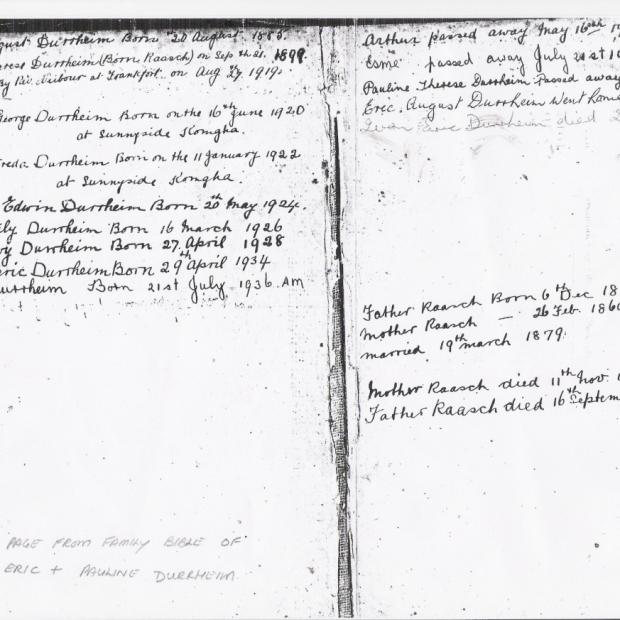 gust Durrheim Born 20 August. 1885.
erese Durrheim (Born Raasch) on Sept 21. 1899
By Rev. Neibour at Frankfort. on Aug 27. 1919.
George Durrheim Born on the 16th June 1920
at Sunnyside Komgha.
reda Durrheim Born on the 11 January 1922
at Sunnyside Komgha.
Edwin Durrheim Born 20th May 1924.
ily Durrheim Born 16 March 1926
y Durrheim Born 27. April 1928
eric Durrheim Born 29th April 1934
urrheim Born 21st July 1936. AM
PAGE FROM FAMILY BIBLE OF
ERIC + PAULINE DURRHEIM.
Arthur passed away May 16th
Esme passed away July 21st
Pauline Therese Durrheim Passed away
Eric. August Durrheim went home
Eric Durrheim died
Father Raasch Born 6th Dec 18
Mother Raasch — 26 Feb. 186
married 19th march 1879.
Mother Raasch died 11th Nov.
Father Raasch died 16th Septem